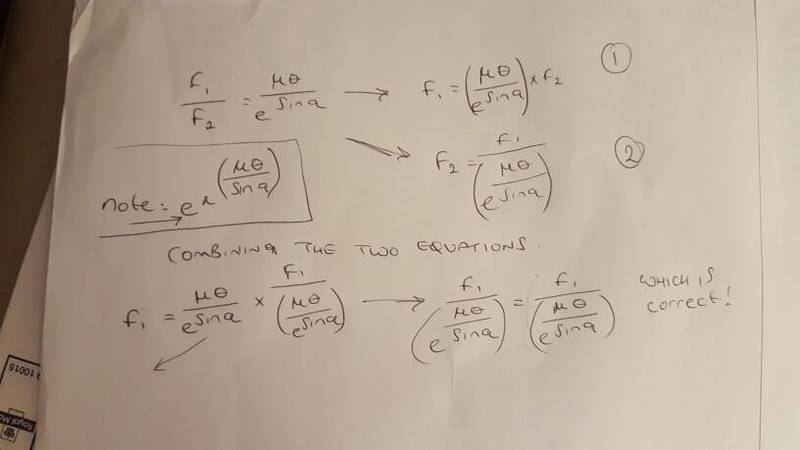 F₁/F₂ = e^(μθ/sin a) → F₁ = (e^(μθ/sin a)) × F₂ ①
F₂ = F₁/(e^(μθ/sin a)) ②
note: e^(μθ/sin a)
COMBINING THE TWO EQUATIONS.
F₁ = e^(μθ/sin a) × F₁/(e^(μθ/sin a)) → F₁/(e^(μθ/sin a)) = F₁/(e^(μθ/sin a)) WHICH IS
correct!
10015
Royal Ma